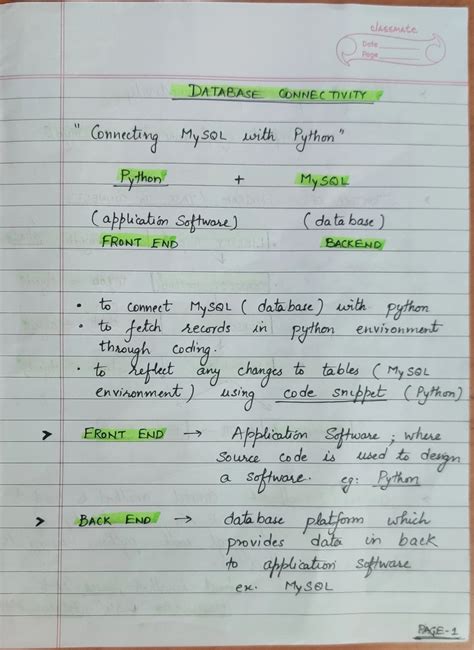 classmate
Date
Page
DATABASE CONNECTIVITY
"Connecting MySQL with Python"
Python + MySQL
(application Software) (database)
FRONT END BACKEND
• to connect MySQL (database) with python
• to fetch records in python environment
through coding.
• to reflect any changes to tables (MySQL
environment) using code snippet (Python)
> FRONT END → Application Software, where
source code is used to design
a software. eg: Python
> BACK END → database platform which
provides data in back
to application software
ex. MySQL
PAGE-1